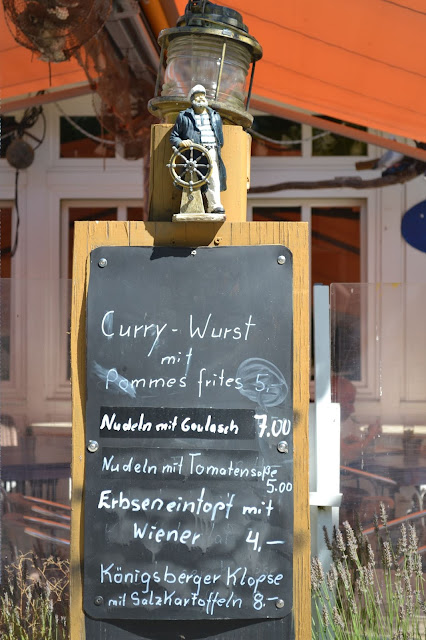 Curry-Wurst
mit
Pommes frites 5,-
Nudeln mit Goulasch 7.00
Nudeln mit Tomatensoße
5.00
Erbseneintopf mit
Wiener 4,-
Königsberger Klopse
mit Salzkartoffeln 8.-